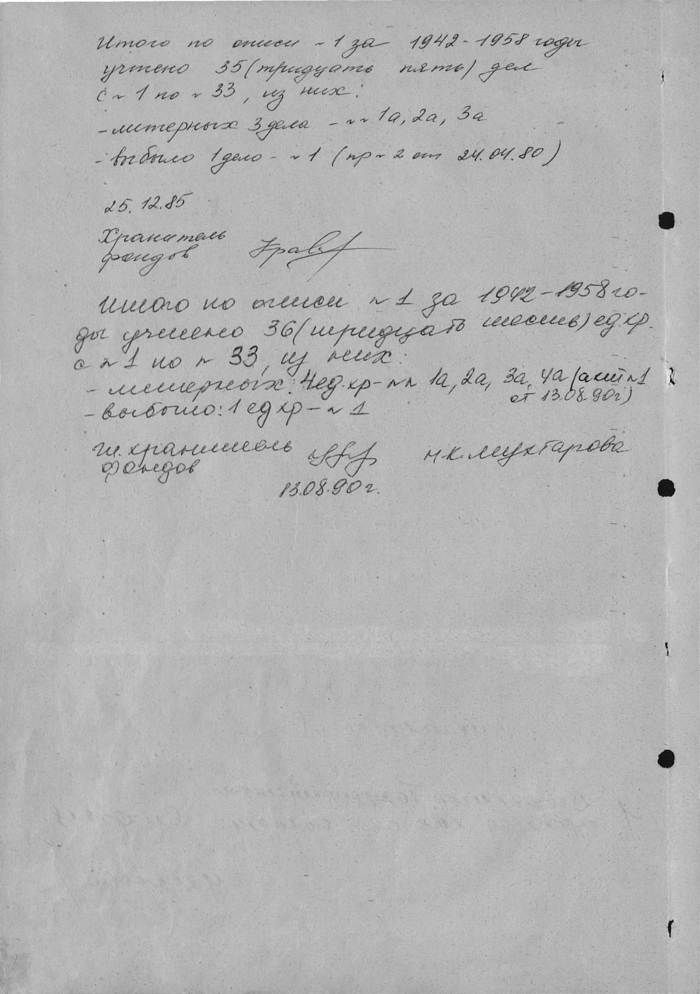 Итого по описи №1 за 1942-1958 годы
учтено 35 (тридцать пять) дел
с №1 по №33, из них:
- литерных 3 дела - №№ 1а, 2а, 3а
- выбыло 1 дело - №1 (пр №2 от 24.04.80)
25.12.85
Хранитель
фондов
Итого по описи №1 за 1942-1958 го-
ды учтено 36 (тридцать шесть) ед.хр.
с №1 по №33, из них:
- литерных: 4 ед.хр - №№ 1а, 2а, 3а, 4а (акт №1
от 13.08.90г)
- выбыло: 1 ед хр - №1
Гл. хранитель
фондов
Н.К. Мухтарова
13.08.90г.